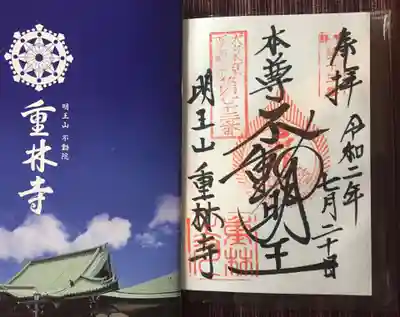 明王山 不動院
重林寺
奉拝
令和二年
七月二十日
本尊
不動明王
明王山 重林寺
重林